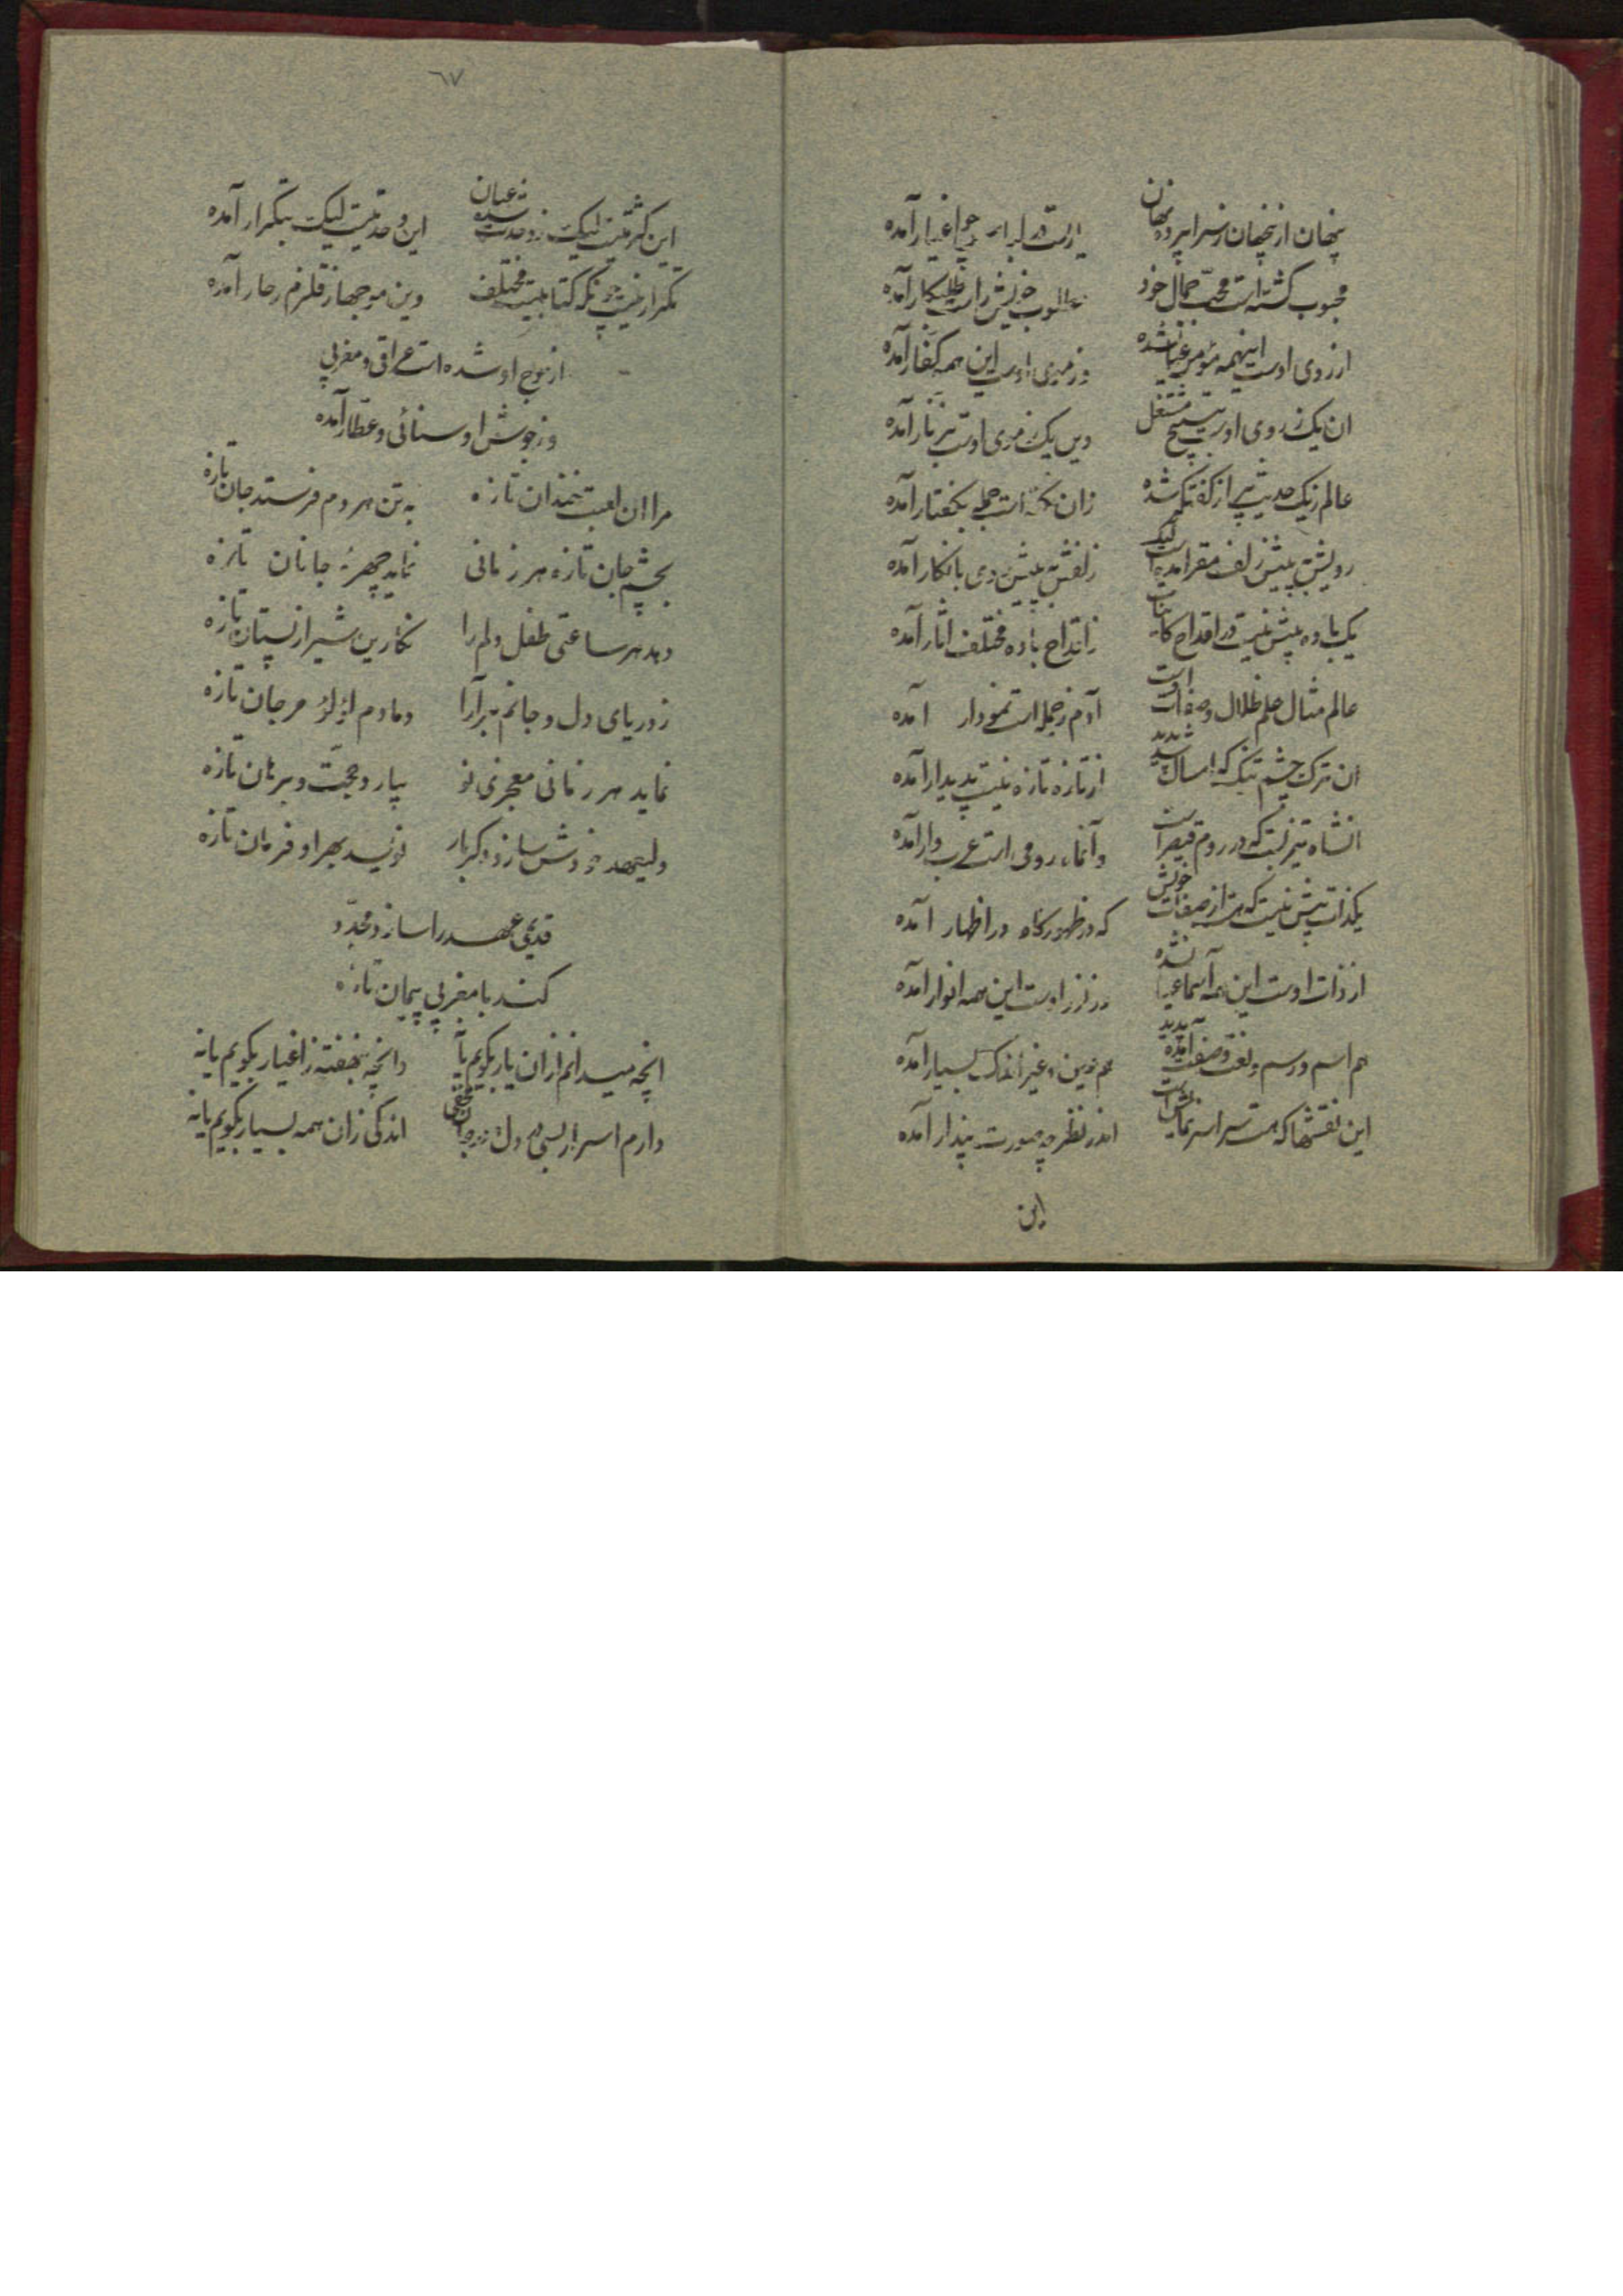 پنهان از پنهان ز سراپرده نهان یارست در لباس چو اغیار آمده
محبوب گشته است محب جمال خود مطلوب خویش راست طلبکار آمده
از روی اوست اینهمه مؤمن عیان شده وز موی اوست این همه کفار آمده
ان یک ز روی اوست بتسبیح مشتغل وین یک ز موی اوست بزنار آمده
عالم ز یک حدیث پر از گفتگو شده زان نکته است جمله بگفتار آمده
رویش به پیش زلف مقر آمده است لیک زلفش به پیش روی بانکار آمده
یک باده بیش نیست در اقداح کاینات زاقداح باده مختلف اثار آمده
عالم مثال علم ظلال و صفات اوست آدم ز جمله است نمودار آمده
ان ترک چشم تنگ که امسال شد پدید از تازه تازه نیست پدیدار آمده
انشاه نیز نیست که در روم قیصر است وآنماه رومی است عرب وار آمده
یکذات بیش نیست که هست از صفات خویش که در ظهور گاه در اظهار آمده
از ذات اوست این همه اسما عیان شده وز نور اوست این همه انوار آمده
هم اسم و رسم و نعت و صفت آمده پدید هم عین و غیر اندک بسیار آمده
این نقشها که هست سراسر نمایش است اندر نظر چو صورت پندار آمده
این
٦٧
این کثرتیست لیک ز وحدت شده عیان این وحدتیست لیک بتکرار آمده
تکرار نیست چونکه کتابیست مختلف وین موجها ز قلزم زخار آمده
از موج او شده است عراقی و مغربی
وز جوش او سنائی و عطار آمده
مرا ان لعبت خندان تازه به تن هر دم فرستد جان تازه
بچشم جان تازه هر زمانی نماید چهرهٔ جانان تازه
دهد هر ساعتی طفل دلم را نگارین شیر از پستان تازه
ز دریای دل و جانم برآرا دمادم لؤلؤ مرجان تازه
نماید هر زمانی معجزی نو بیارد حجت و برهان تازه
ولیعهد خودش سازد دگر بار نویسد بهر او فرمان تازه
قدیمی عهد را سازد مجدد
کند با مغربی پیمان تازه
انچه میدانم ازان یار بگویم یا نه وانچه بنهفته ز اغیار بگویم یا نه
دارم اسرار بسی در دل اندکی زان همه بسیار بگویم یا نه